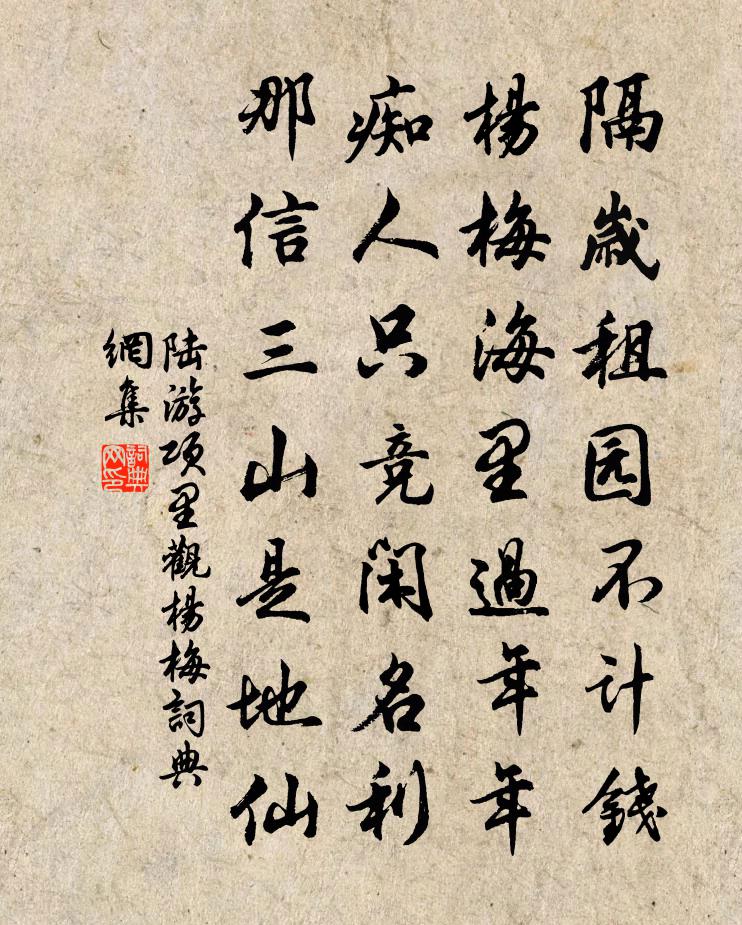 隔歲租园不计錢
楊梅海里過年年
痴人只竞闲名利
那信三山是地仙
陆游项里觀楊梅詞典
網集
詞典
网印